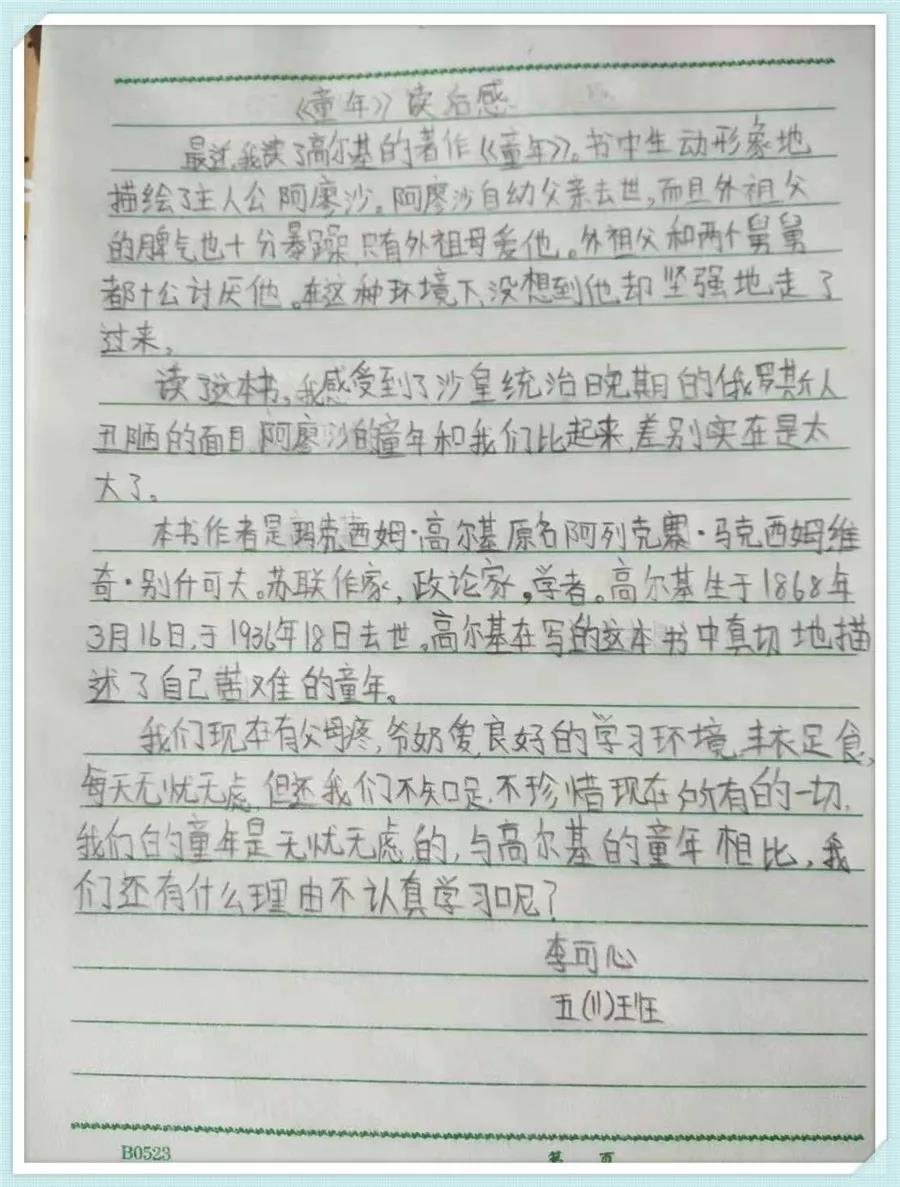 《童年》读后感
最近,我读了高尔基的著作《童年》。书中生动形象地
描绘了主人公阿廖沙。阿廖沙自幼父亲去世,而且外祖父
的脾气也十分暴躁,只有外祖母爱他。外祖父和两个舅舅
都十分讨厌他。在这种环境下,没想到他却坚强地走了
过来。
读了这本书,我感受到了沙皇统治晚期的俄罗斯人
丑陋的面目,阿廖沙的童年和我们比起来,差别实在是太
大了。
本书作者是玛克西姆·高尔基原名阿列克塞·马克西姆维
奇·别什可夫。苏联作家,政论家,学者。高尔基生于1868年
3月16日,于1936年18日去世。高尔基在写的这本书中真切地描
述了自己苦难的童年。
我们现在有父母疼,爷奶爱,良好的学习环境,丰衣足食,
每天无忧无虑,但还我们不知足,不珍惜现在所有的一切,
我们的童年是无忧无虑的,与高尔基的童年相比,我
们还有什么理由不认真学习呢?
李可心
五(1)班
B0523
第 页